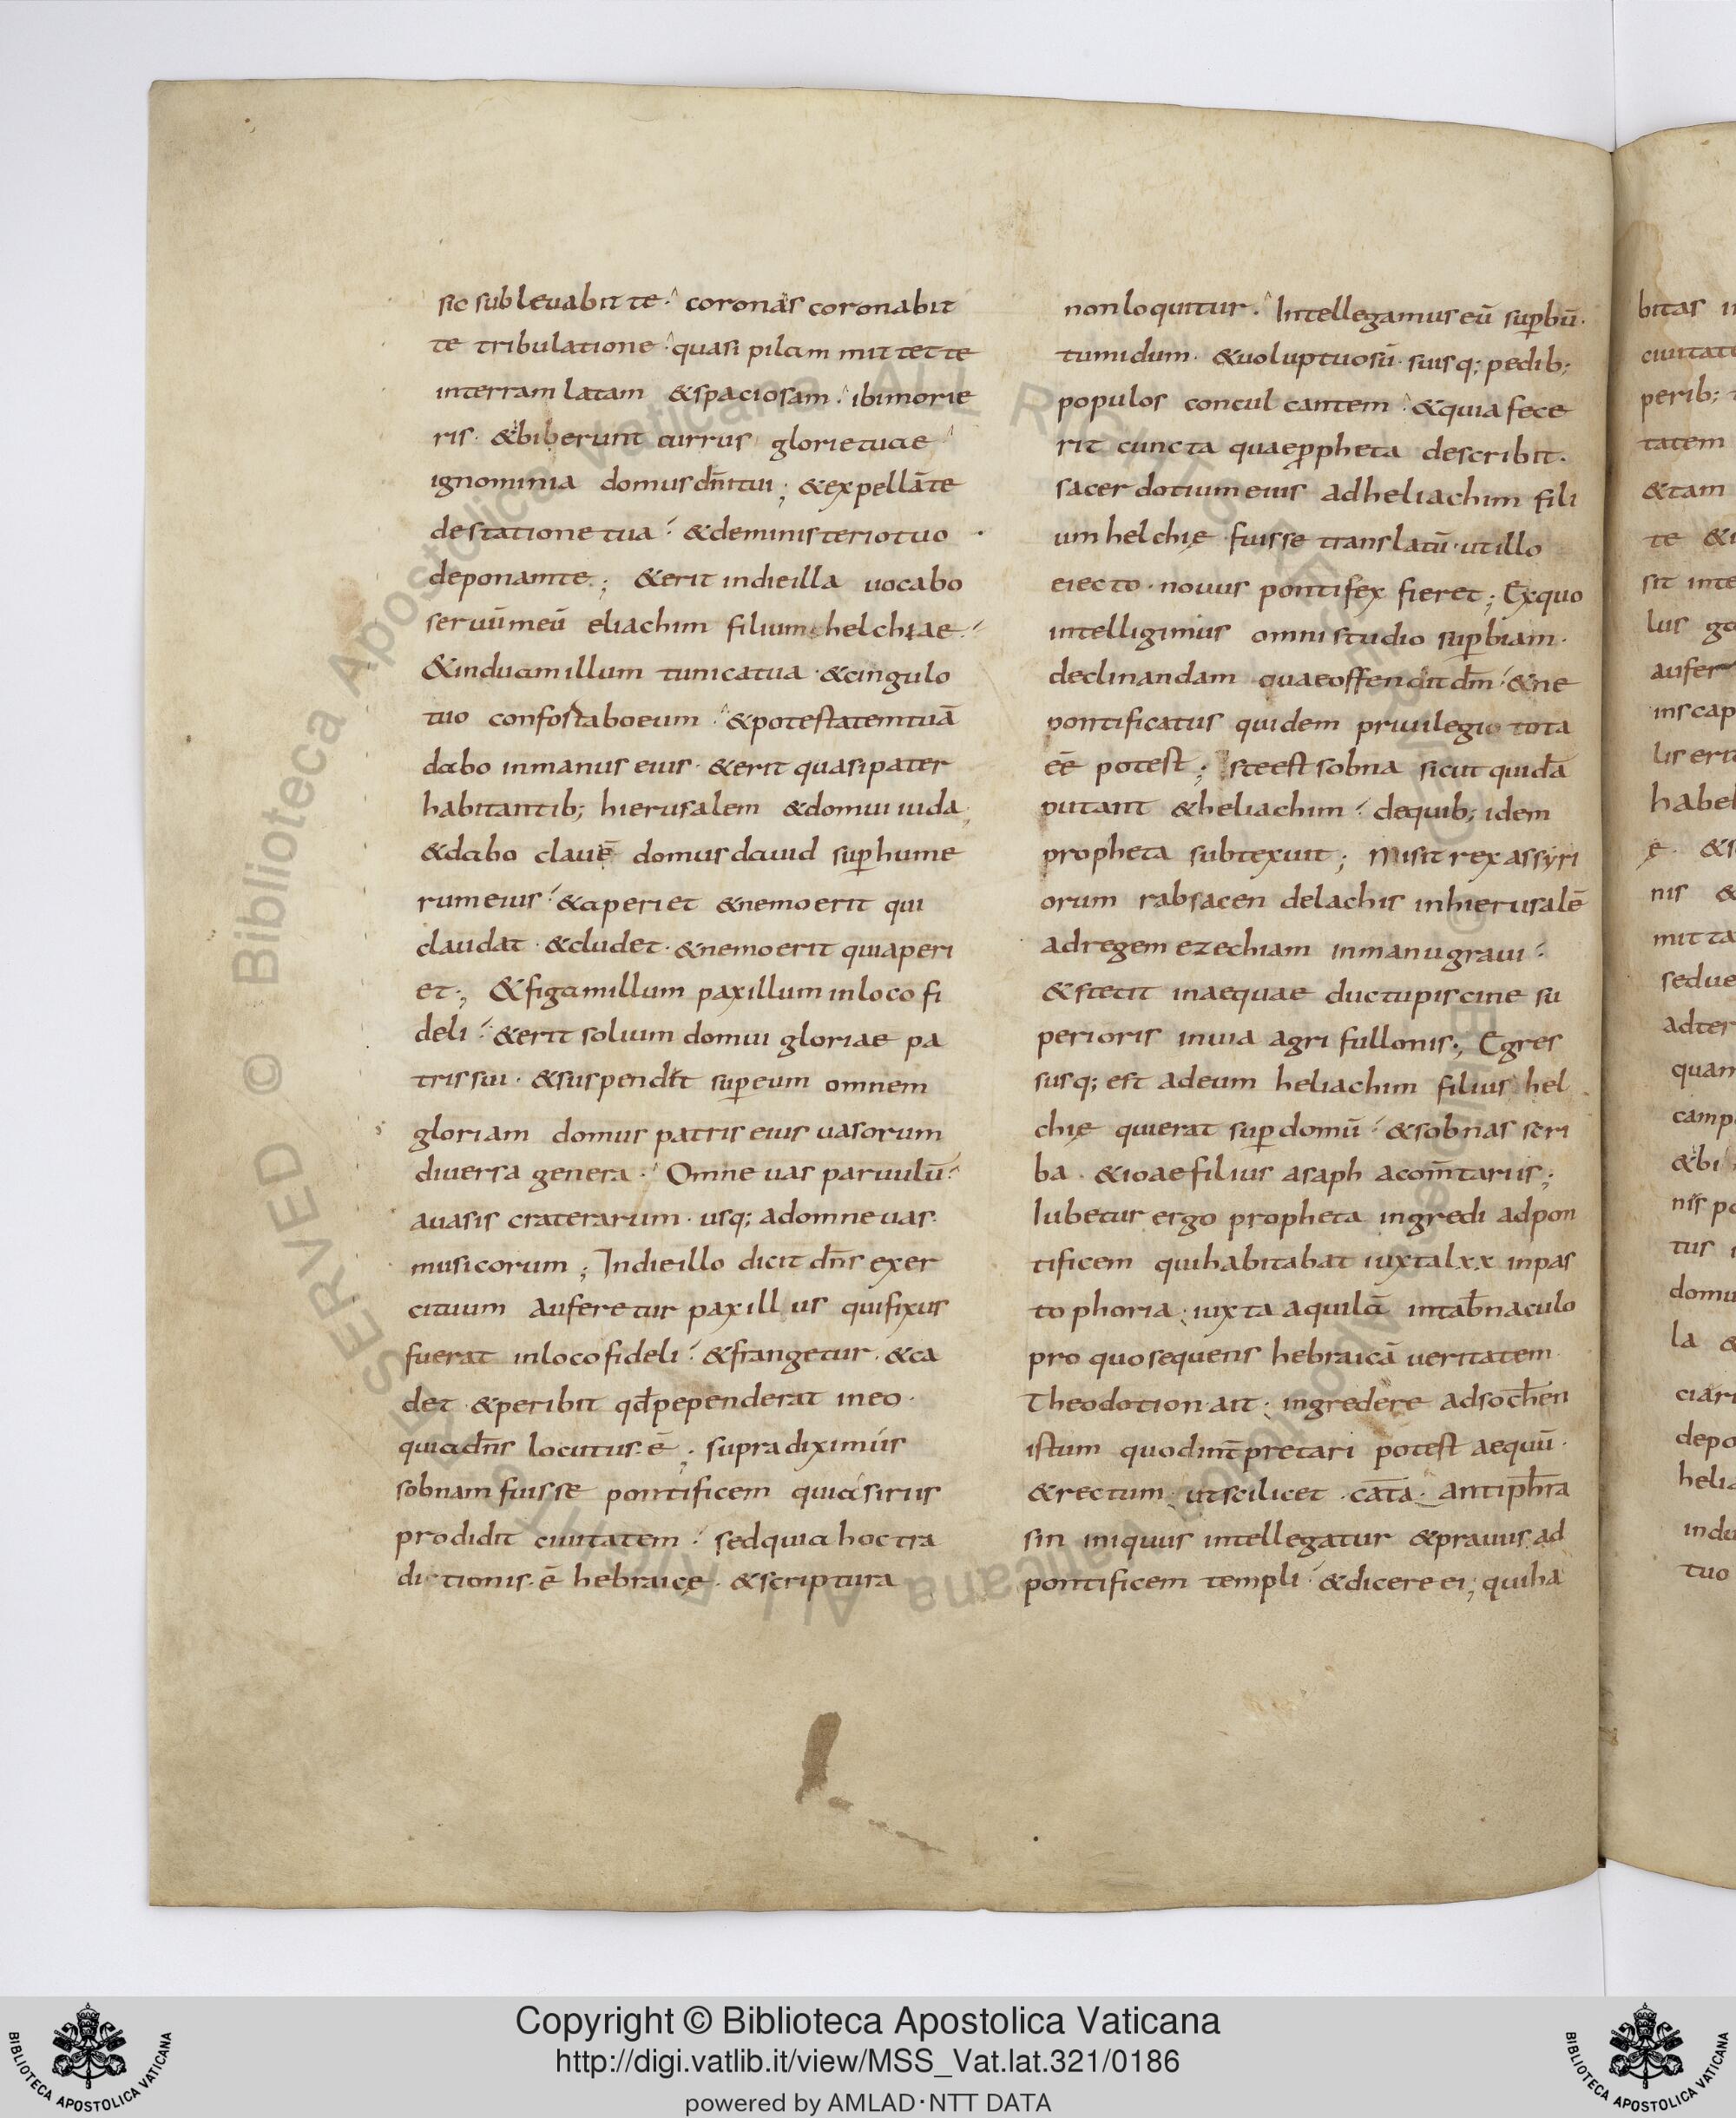 sic subleuabit te. coronas coronabit
te tribulatione. quasi pilam mittet te
interram latam &spaciosam. ibimorie
ris. &biberunt currus glorietuae
ignominia domusdn̄itui; &expellāte
destationetua. &deministeriotuo
deponamte.; &erit indieilla uocabo
seruūmeū eliachim filium helchiae.
&induamillum tunicatua. &cingulo
tuo confortaboeum. &potestatemtuā
dabo inmanus eius. &erit quasipater
habitantib; hierusalem &domui iuda;
&dabo clauē domusdauid sup̄hume
rumeius. &aperiet &nemoerit qui
claudat. &cludet. &nemoerit quiaperi
et.; &figamillum paxilluminloco fi
deli. &erit solium domui gloriae pa
trissui. &suspendit sup̄eum omnem
gloriam domus patris eius uasorum
diuersa genera. Omne uas paruulū.
auasis craterarum. usq; adomneuas.
musicorum; Indieillo dicit dn̄s exer
cituum auferetur paxillus quifixus
fuerat inlocofideli. &frangetur. &ca
det. &peribit qd̄pependerat ineo.
quiadn̄s locutus.ē; supradiximus
sobnamfuisse pontificem quiasirus
prodidit ciuitatem. sedquia hoctra
dictionis.ē hebraicę. &scriptura
nonloquitur. Intellegamuseū sup̄bū.
tumidum. &uoluptuosū. suisq; pedib;
populos conculcantem. &quiafece
rit cuncta quaep̄pheta describit.
sacerdotiumeius adheliachim fili
umhelchię fuisse translatū. utillo
eiecto. nouus pontifex fieret; Exquo
intelligimus omnistudio sup̄biam.
declinandam quaeoffendit dm̄. &ne
pontificatus quidem priuilegio tota
ēē potest; Isteest sobna sicut quidā
putant &heliachim. dequib; idem
propheta subtexuit; Misit rex assyri
orum rabsacen delachis inhierusalē
adregem ezechiam inmanugraui.
&stetit inaequae ductupiscine su
perioris inuia agri fullonis.; Egres
susq; est adeum heliachim filius hel
chię quierat sup̄domū. &sobnas scri
ba. &ioaefilius asaph acom̄tariis;
Iubetur ergo propheta ingredi adpon
tificem quihabitabat iuxtalxx inpas
tophoria. iuxta aquilā intab̄naculo
pro quosequens hebraicā ueritatem.
Theodotion ait. ingredere adsoch̄en
istum quodint̄pretari potest aequū.
&rectum. utscilicet .cāta. antiph̄ra
sin iniquus intellegatur &prauus. ad
pontificem templi. &dicere ei; quiha
bitas
ciuitate
perib;
tatem
&tam
te
sit inte
lus
aufer
inscap
lis erit
habe
ę.
nis
mitta
sedue
adter
quam
camp
&bi
tus
domu
la
ciari
depo
helia
indu
tuo
Copyright © Biblioteca Apostolica Vaticana
http://digi.vatlib.it/view/MSS_Vat.lat.321/0186
powered by AMLAD·NTT DATA
BIBLIOTECA APOSTOLICA VATICANA
BIBLIOTECA APOSTOLICA VATICANA
© Biblioteca Apostolica Vaticana ALL RIGHTS RESERVED
© Biblioteca Apostolica Vaticana ALL RIGHTS RESERVED